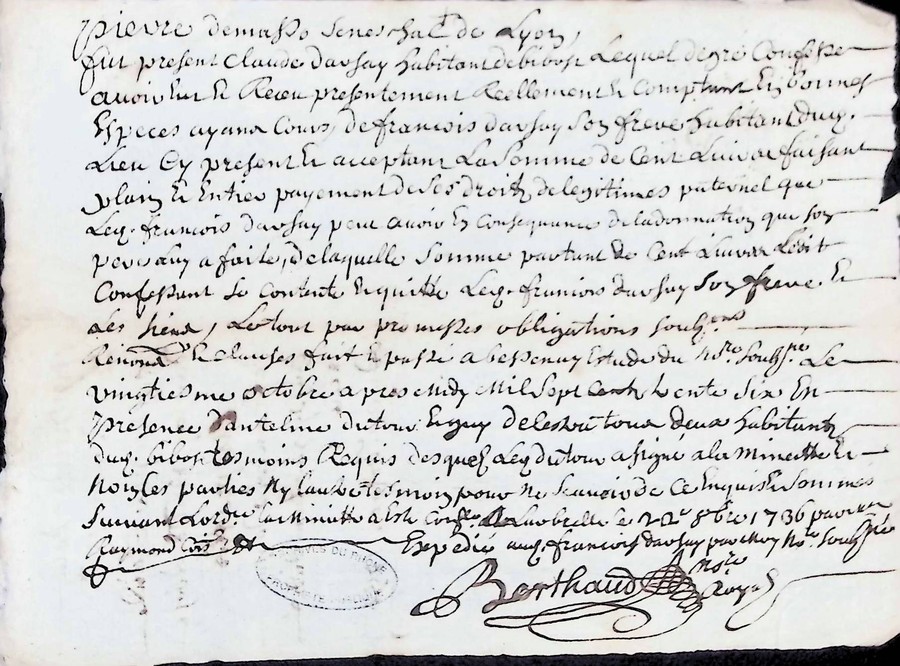 pierre demasso seneschal de Lyon,
fut present Claude dussay habitant de bibost Lequel de gré Confesse
avoir eu et Receu presentement Reellement et Comptant En bonnes
Especes ayant Cours de francois dussay son frere habitant dud.
Lieu Cy present et acceptant La somme de Cent Livres faisant
plain et Entier payement de ses droits de legitimes paternel que
Led. francois dussay peut avoir En Consequance de la donnation que son
pere Luy a faite, de laquelle somme partant de Cent Livres Ledit
Confessant se contente En quitte Led. francois dussay son frere Et
Les siens, Le tout par promesses obligations soub.
Renon.. et clauses fait et passé a bessenay Estude du no.re soubs.né Le
vingtiesme octobre apres midy Mil sept cent trente six En
presence d'antelme dutour Et guy de tous deux habitants
dud. bibost tesmoins Requis desquels Led. dutour a signé a la Minutte Et
Non les parties Ny l'autre tesmoin pour ne scavoir de Ce Enquis Et sommes
suivant L'ord.ce la Minutte a Esté Con.lée a Larbrelle le 22e 8bre 1736 par
Raymond Con.s
Expedié aud. francois dussay par Moy No.re soubs.né
Berthaud no.re Royal
ARCHIVES DU RHONE